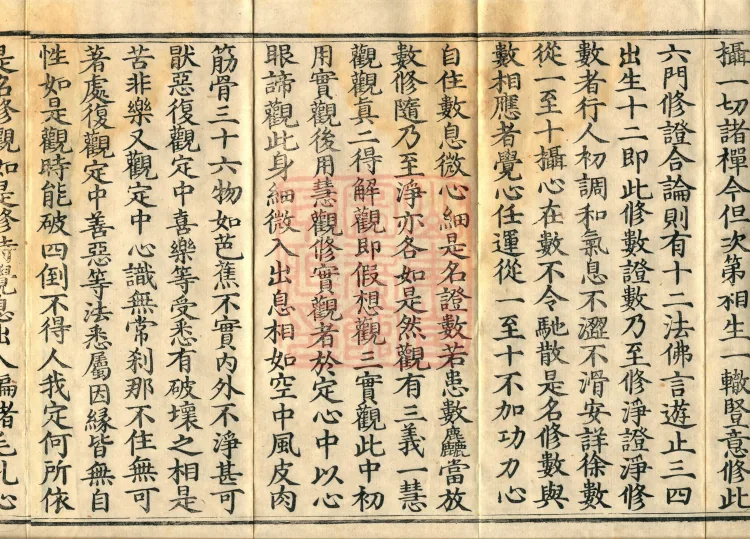 攝一切諸禪今但次第相生一轍豎意修此
六門修證合論則有十二法佛言遊止三四
出生十二即此修數證數乃至修淨證淨修
數者行人初調和氣息不澀不滑安詳徐數
從一至十攝心在數不令馳散是名修數與
數相應者覺心任運從一至十不加功力心
自住數息微心細是名證數若患數麤當放
數修隨乃至淨亦各如是然觀有三義一慧
觀觀真二得解觀即假想觀三實觀此中初
用實觀後用慧觀修實觀者於定心中以心
眼諦觀此身細微入出息相如空中風皮肉
筋骨三十六物如芭蕉不實內外不淨甚可
猒惡復觀定中喜樂等受悉有破壞之相是
苦非樂又觀定中心識無常剎那不住無可
著處復觀定中善惡等法悉屬因緣皆無自
性如是觀時能破四倒不得人我定何所依
是名修觀如是修時覺息出入徧諸毛孔心